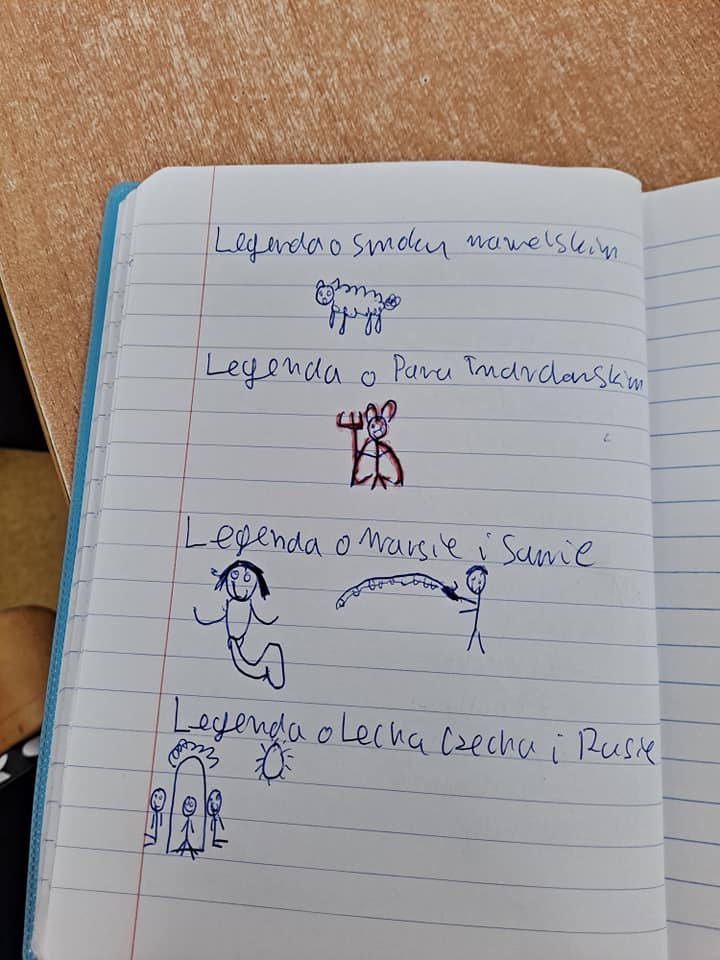 Legenda o smoku wawelskim
Legenda o Panu Twardowskim
Legenda o Warsie i Sawie
Legenda o Lecha Czecha i Rusie